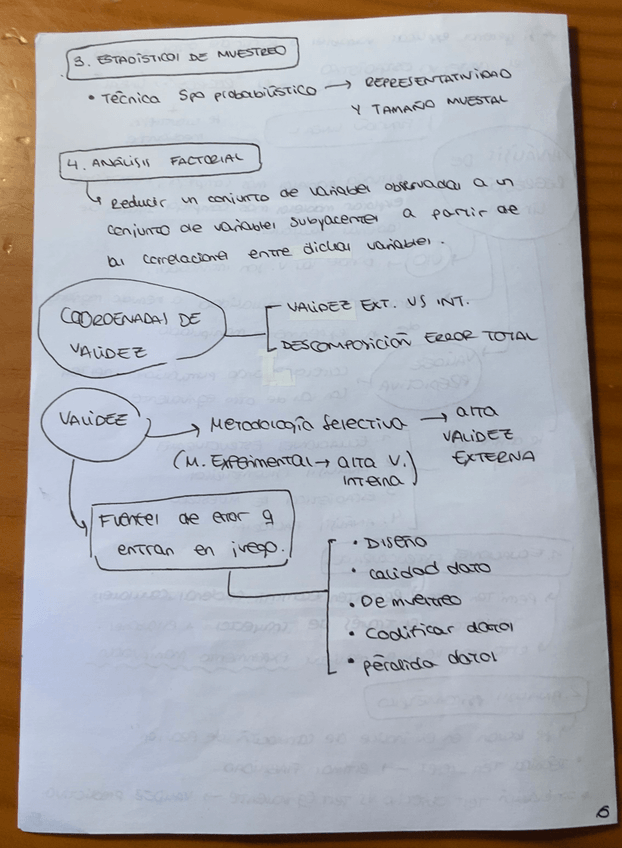 3. ESTADÍSTICOS DE MUESTREO
• Técnica tipo probabilístico → REPRESENTATIVIDAD
Y TAMAÑO MUESTAL
4. ANÁLISIS FACTORIAL
↳ Reducir un conjunto de variables observadas a un
conjunto de variables subyacentes a partir de
las correlaciones entre dichas variables.
COORDENADAS DE
VALIDEZ
VALIDEZ EXT. VS INT.
DESCOMPOSICIÓN ERROR TOTAL
VALIDEZ
→ Metodología Selectiva → alta
VALIDEZ
EXTERNA
(M. Experimental → alta V.
Interna)
Fuentes de error q
entran en juego.
• DISEÑO
• calidad dato
• De muestreo
• Codificar datos
• pérdida datos
6